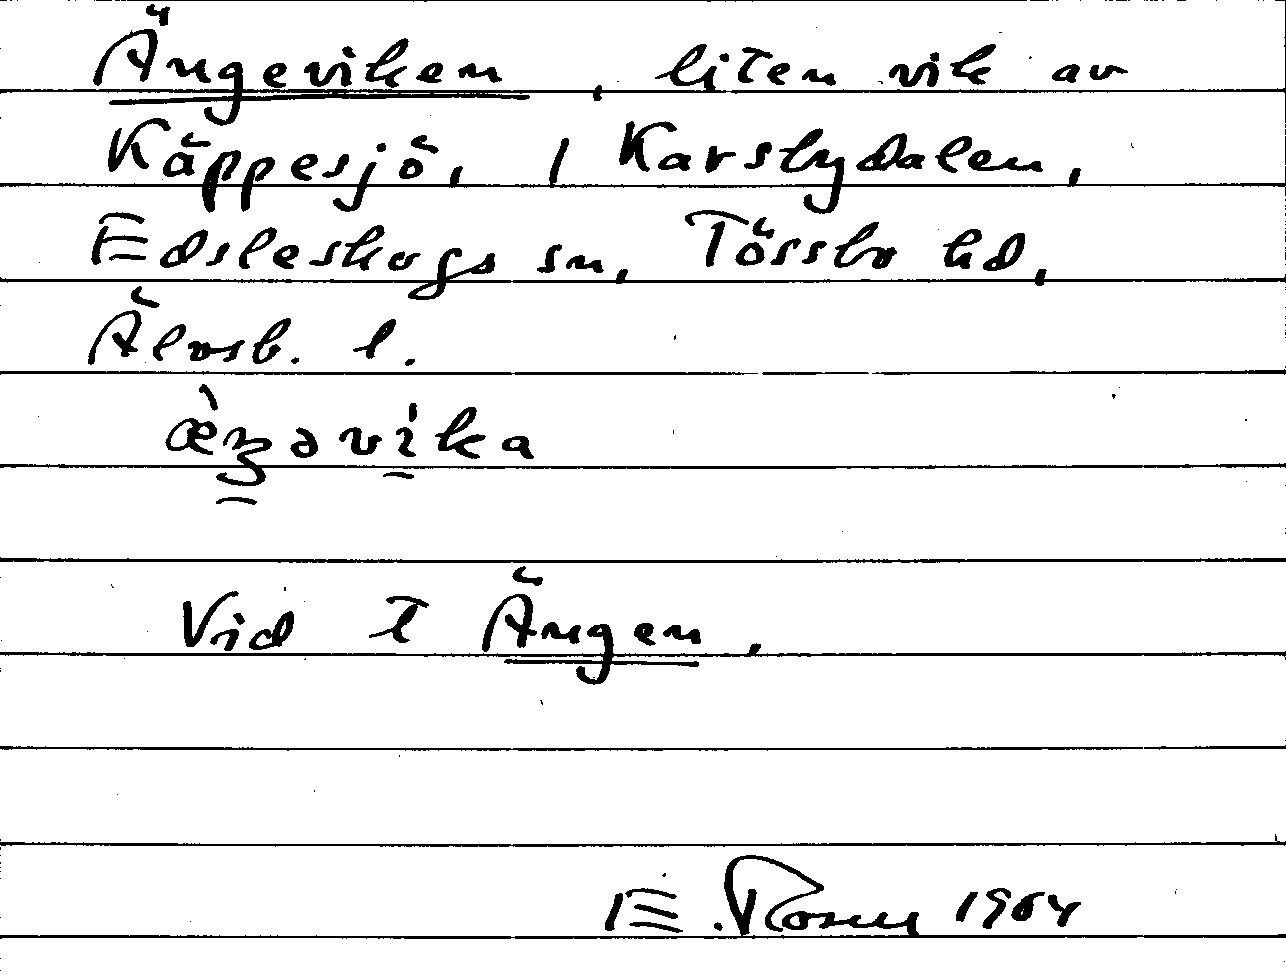 Ängeviken, liten vik av
Käppesjö, 1 Karsbydalen,
Edsleskogs sn, Tössbo hd,
Älvsb. l.
Vid T Ängen.
E. Rosell 1964